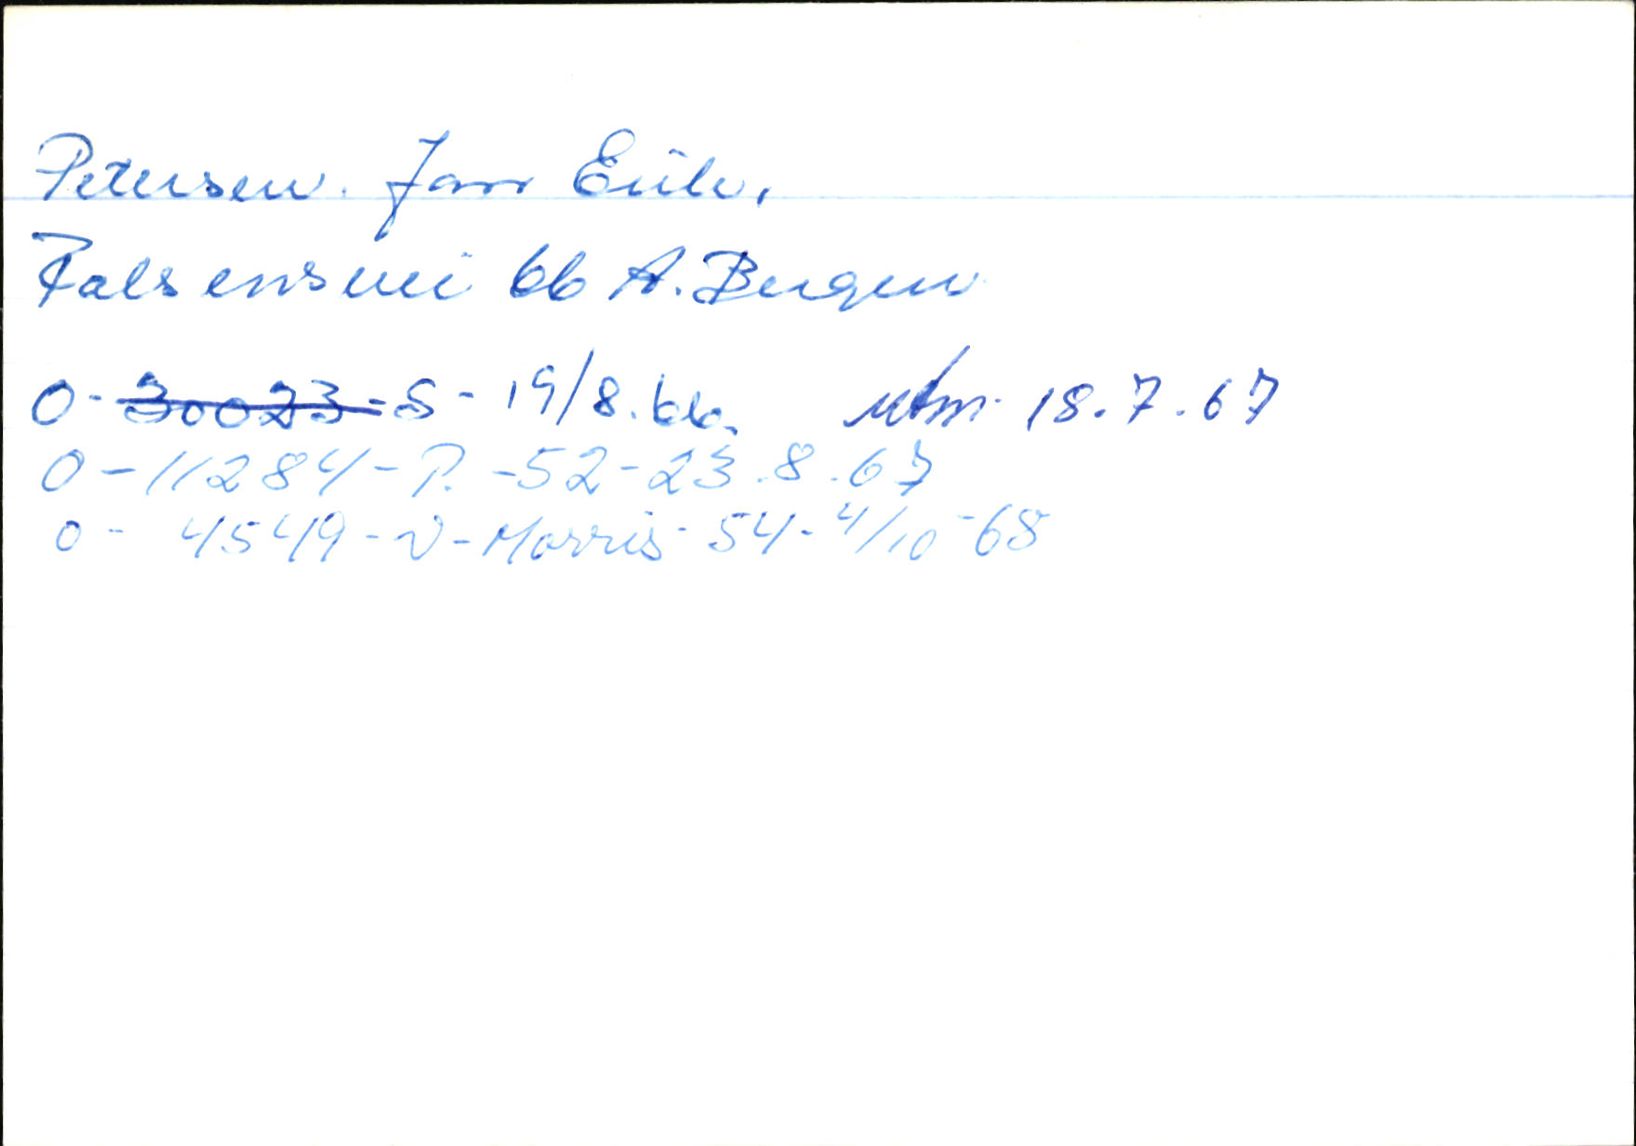 Petersen. Jan Eilev,
Falsensvei 66 A. Bergen
O-30023-S-19/8.66. utm. 18.7.67
O-11284-P.-52-23.8.67
O-4549-V-Morris-54-4/10-68